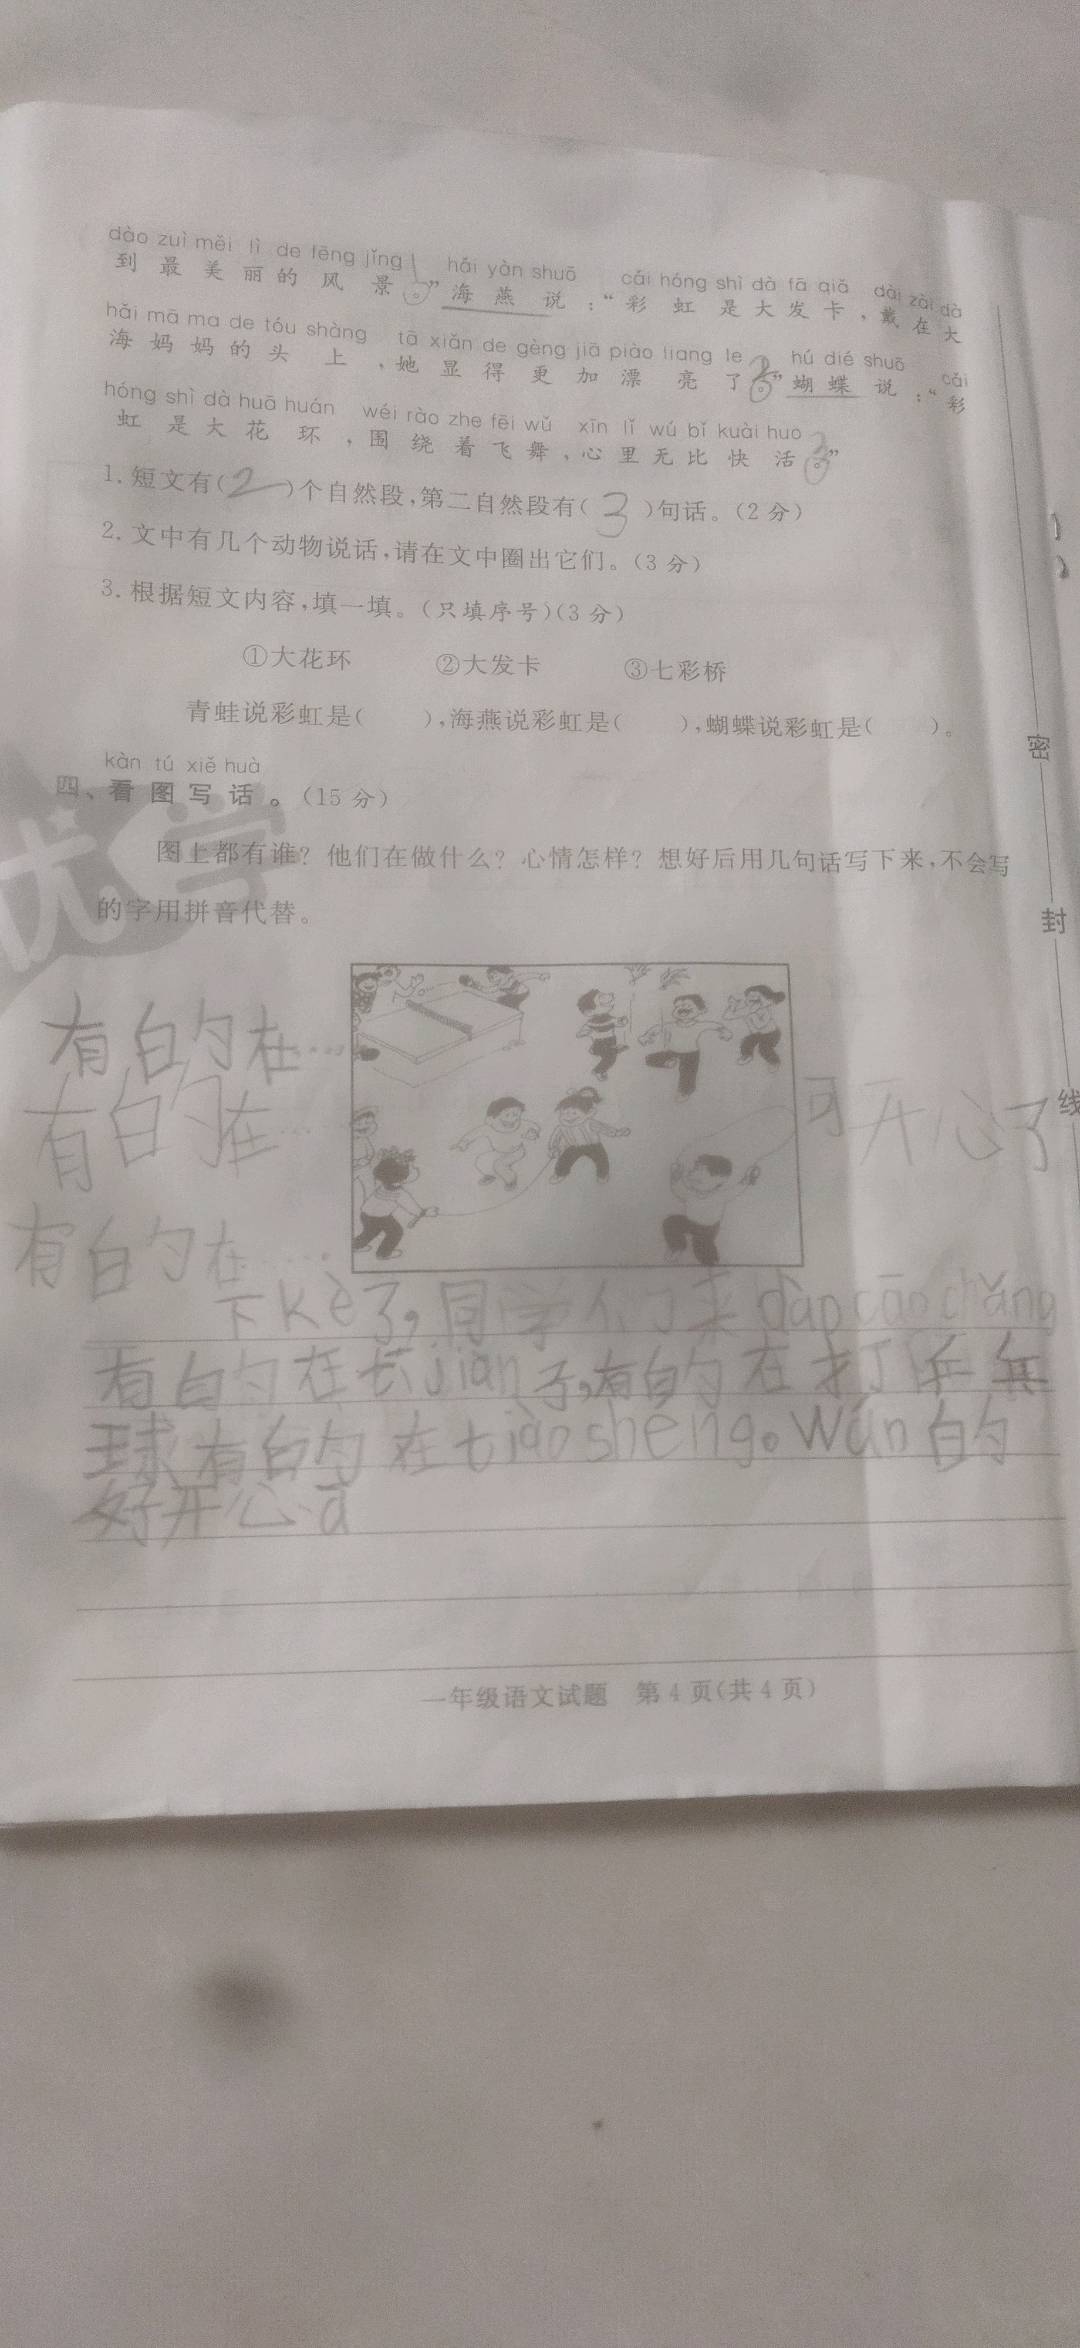 dào zuì měi lì de fēng jǐng hǎi yàn shuō cǎi hóng shì dà fā qiǎ dài zài dà
到最美丽的风景。”海燕说：“彩虹是大发卡，戴在大
hǎi mā ma de tóu shàng tā xiǎn de gèng jiā piào liang le hú dié shuō cǎi
海妈妈的头上，她显得更加漂亮了。”蝴蝶说：“彩
hóng shì dà huā huán wéi rào zhe fēi wǔ xīn lǐ wú bǐ kuài huo
虹是大花环，围绕着飞舞，心里无比快活。”
1. 短文有(2)个自然段,第二自然段有(3)句话。(2分)
2. 文中有几个动物说话,请在文中圈出它们。(3分)
3. 根据短文内容,填一填。(只填序号)(3分)
①大花环 ②大发卡 ③七彩桥
青蛙说彩虹是( ),海燕说彩虹是( ),蝴蝶说彩虹是( )。
kàn tú xiě huà
四、看图写话。(15分)
图上都有谁？他们在做什么？心情怎样？想好后用几句话写下来,不会写
的字用拼音代替。
有的在……
有的在……
可开心了
有的在……
下kè了,同学们来dào cāo chǎng
有的在长jiàn子,有的在打乒乓
球有的在tiào shéng。wán的
好开心ā
一年级语文试题 第4页(共4页)
密
封
线
优学